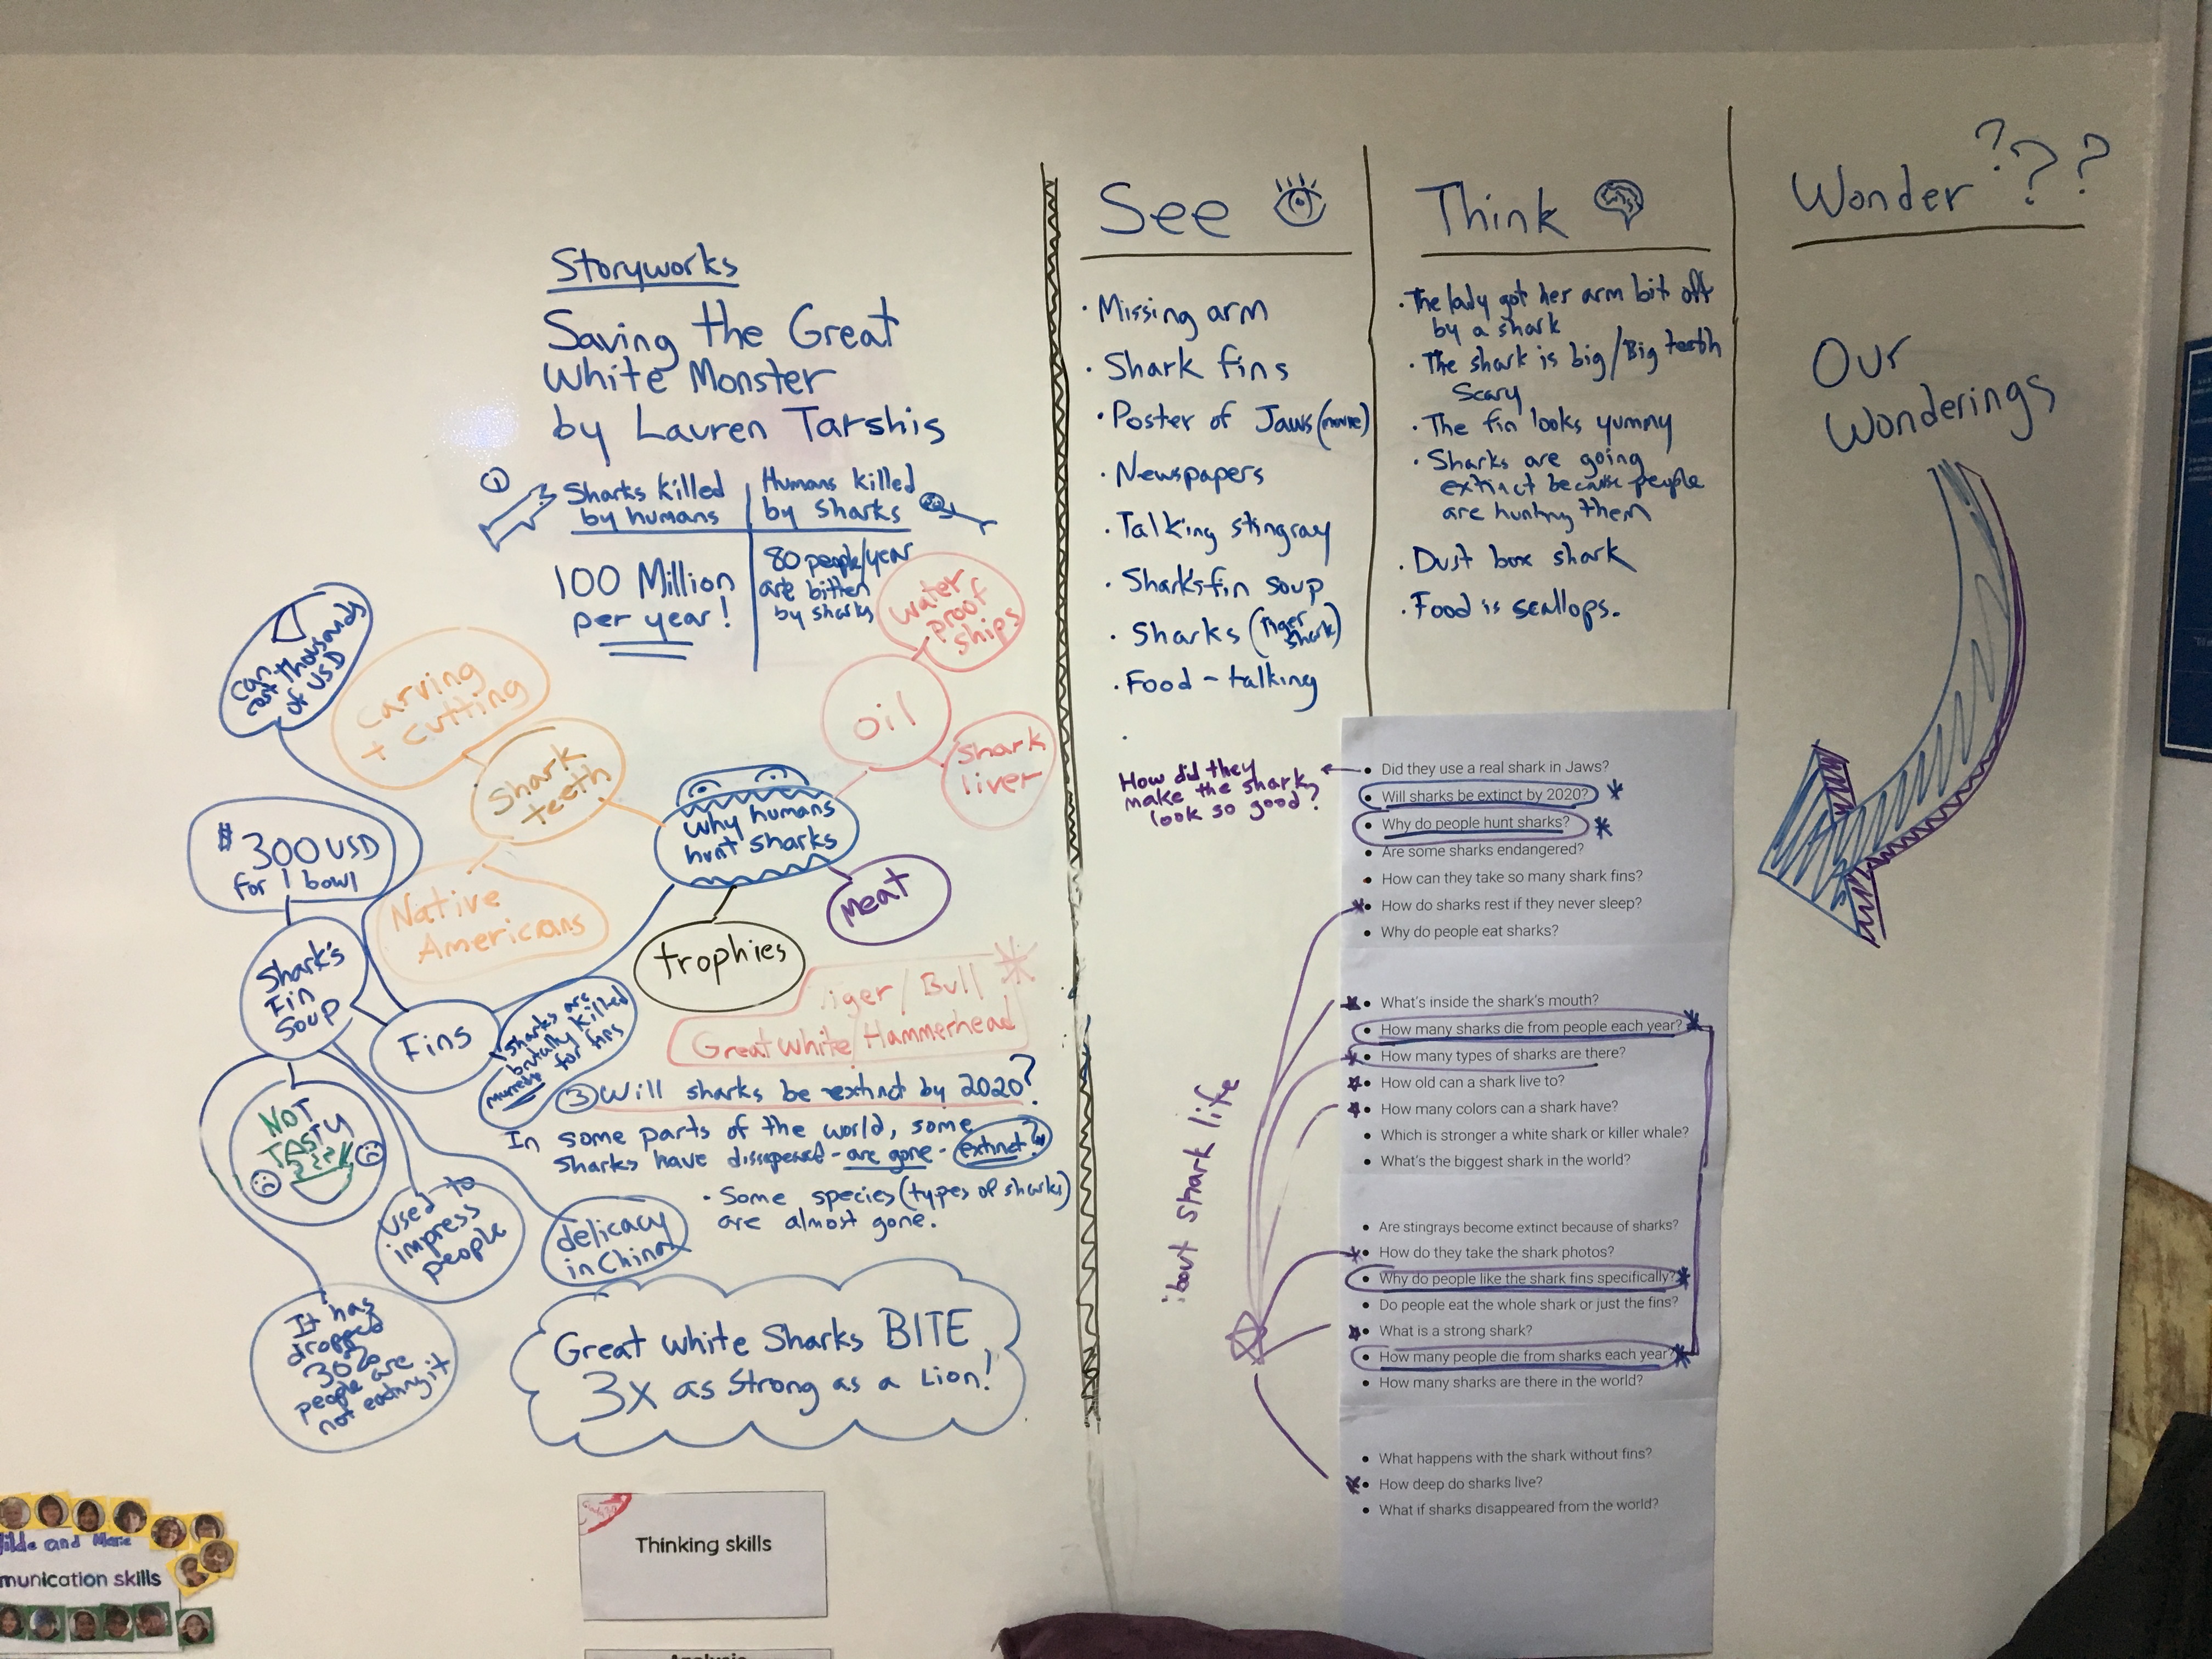 Storyworks
Saving the Great
White Monster
by Lauren Tarshis
①
Sharks killed
by humans
Humans killed
by sharks
100 Million
per year!
80 people/year
are bitten
by sharks
why humans
hunt sharks
oil
water
proof
ships
shark
liver
Shark
teeth
Carving
+ cutting
Native
Americans
Meat
trophies
Fins
can
cost thousands
of USD
Sharks are
brutally killed
for fins
Shark's
Fin
Soup
$300 USD
for 1 bowl
NOT
TASTY
used to
impress
people
delicacy
in China
It has
dropped
30%
people are
not eating it
Tiger/Bull
Great white/Hammerhead
③ Will sharks be extinct by 2020?
In some parts of the world, some
sharks have dissapeared - are gone - extinct?
• Some species (types of sharks)
are almost gone.
Great white Sharks BITE
3x as strong as a Lion!
See
• Missing arm
• Shark fins
• Poster of Jaws (movie)
• Newspapers
• Talking stingray
• Sharksfin soup
• Sharks (tiger
shark)
• Food - talking
Think
• The lady got her arm bit off
by a shark
• The shark is big/Big teeth
Scary
• The fin looks yummy
• Sharks are going
extinct because people
are hunting them
• Dust box shark
• Food is scallops.
Wonder ???
Our
Wonderings
How did they
make the shark
look so good?
about shark life
• Did they use a real shark in Jaws?
• Will sharks be extinct by 2020?
• Why do people hunt sharks?
• Are some sharks endangered?
• How can they take so many shark fins?
• How do sharks rest if they never sleep?
• Why do people eat sharks?
• What's inside the shark's mouth?
• How many sharks die from people each year?
• How many types of sharks are there?
• How old can a shark live to?
• How many colors can a shark have?
• Which is stronger a white shark or killer whale?
• What's the biggest shark in the world?
• Are stingrays become extinct because of sharks?
• How do they take the shark photos?
• Why do people like the shark fins specifically?
• Do people eat the whole shark or just the fins?
• What is a strong shark?
• How many people die from sharks each year?
• How many sharks are there in the world?
• What happens with the shark without fins?
• How deep do sharks live?
• What if sharks disappeared from the world?
and Marie
munication skills
Thinking skills